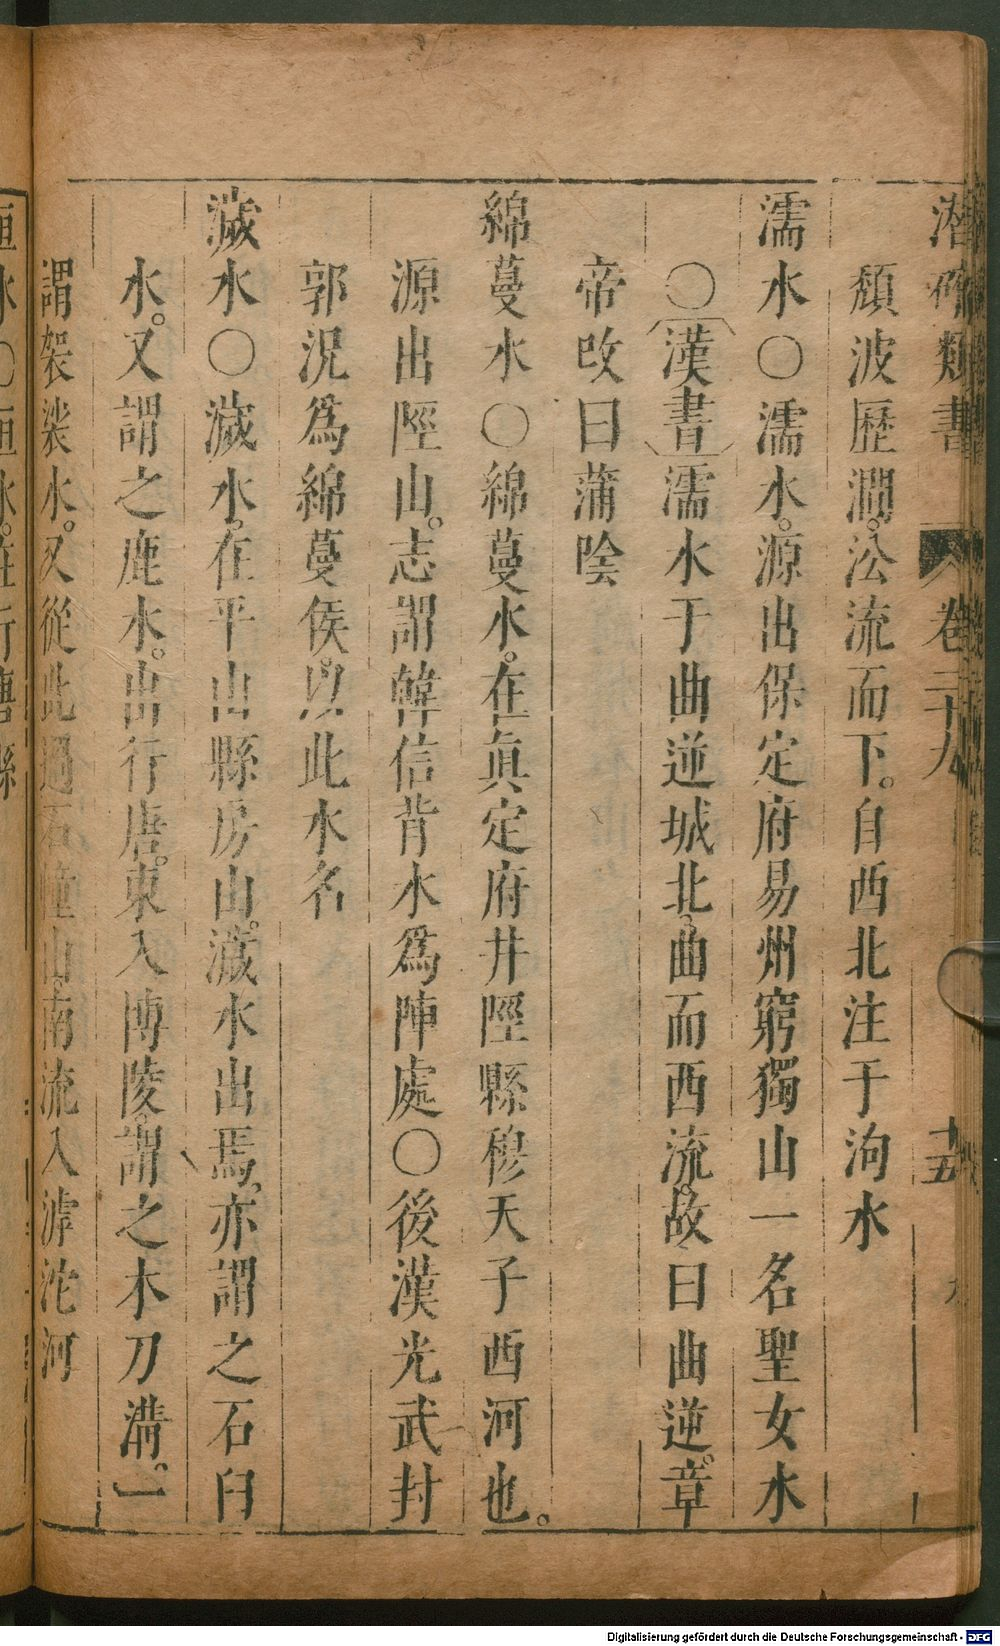 潛確類書 卷二十九 十五
頹波歷澗。㳂流而下。自西北注于泃水
濡水〇濡水。源出保定府易州窮獨山一名聖女水
〇漢書濡水于曲逆城北。曲而西流。故曰曲逆。章
帝改曰蒲陰
綿蔓水〇綿蔓水。在眞定府井陘縣穆天子西河也。
源出陘山。志謂韓信背水爲陣處〇後漢光武封
郭況爲綿蔓侯。以此水名
濊水〇濊水。在平山縣房山。濊水出焉。亦謂之石臼
水。又謂之鹿水。出行唐。東入博陵。謂之木刀溝。一
謂袈裟水。又從此過石瞳山。南流入滹沱河
Digitalisierung gefördert durch die Deutsche Forschungsgemeinschaft - DFG